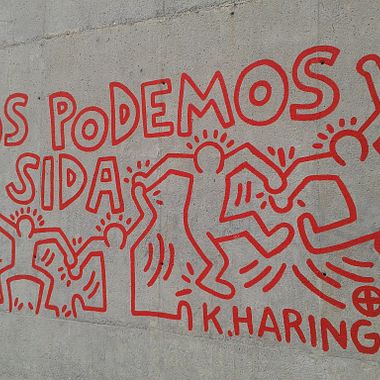 OS PODEMOS
SIDA
K.HARING